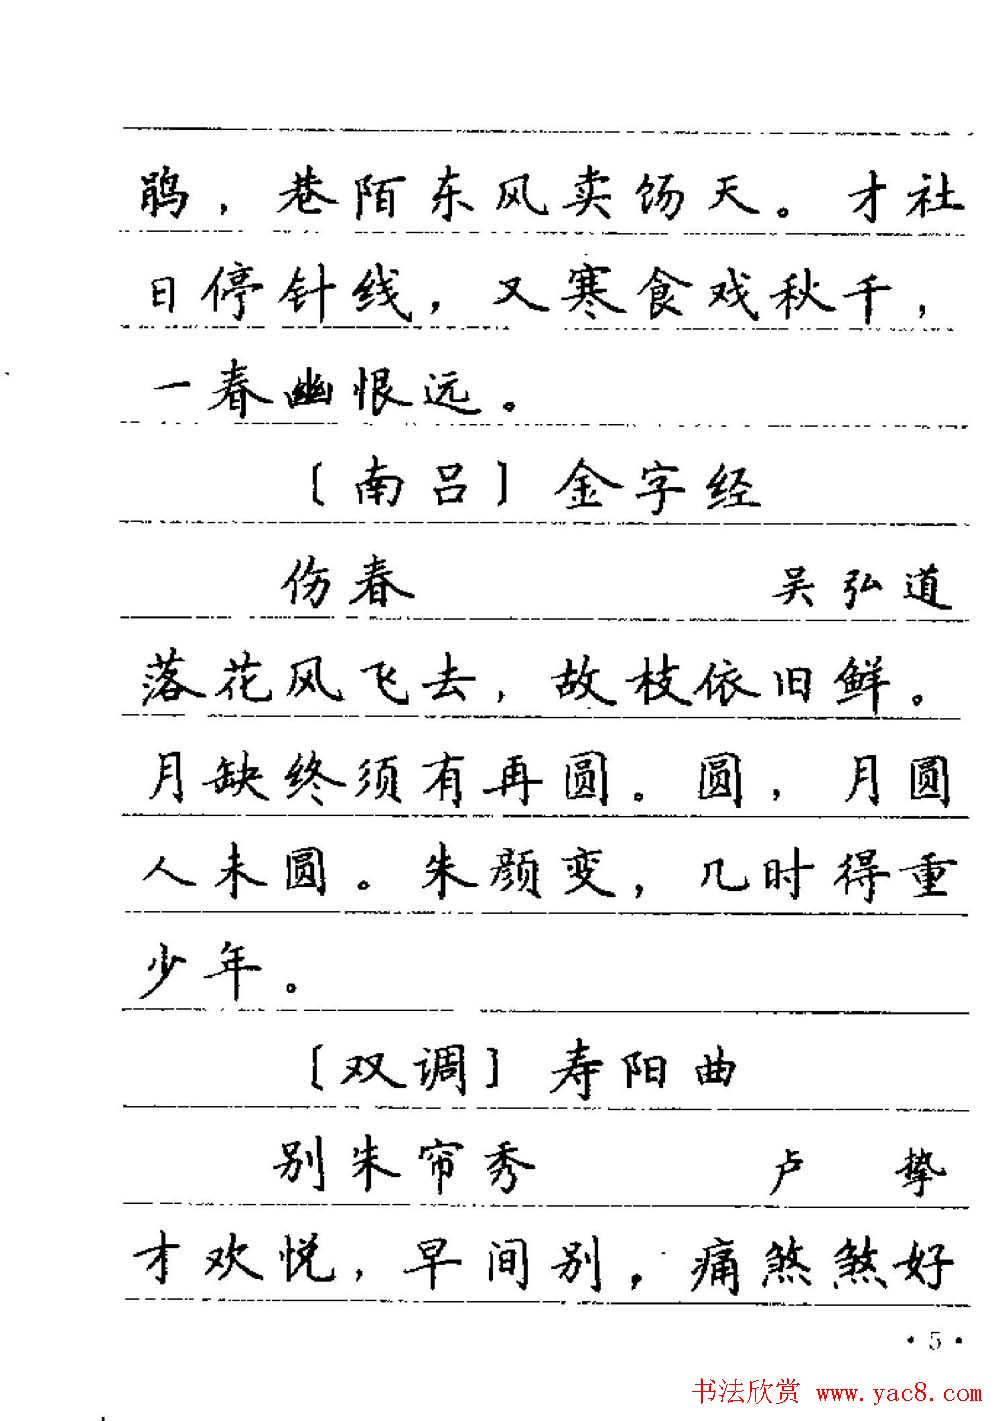 鹃，巷陌东风卖饧天。才社
日停针线，又寒食戏秋千，
一春幽恨远。
〔南吕〕金字经
伤春 吴弘道
落花风飞去，故枝依旧鲜。
月缺终须有再圆。圆，月圆
人未圆。朱颜变，几时得重
少年。
〔双调〕寿阳曲
别朱帘秀 卢挚
才欢悦，早间别，痛煞煞好
·5·
书法欣赏 www.yac8.com